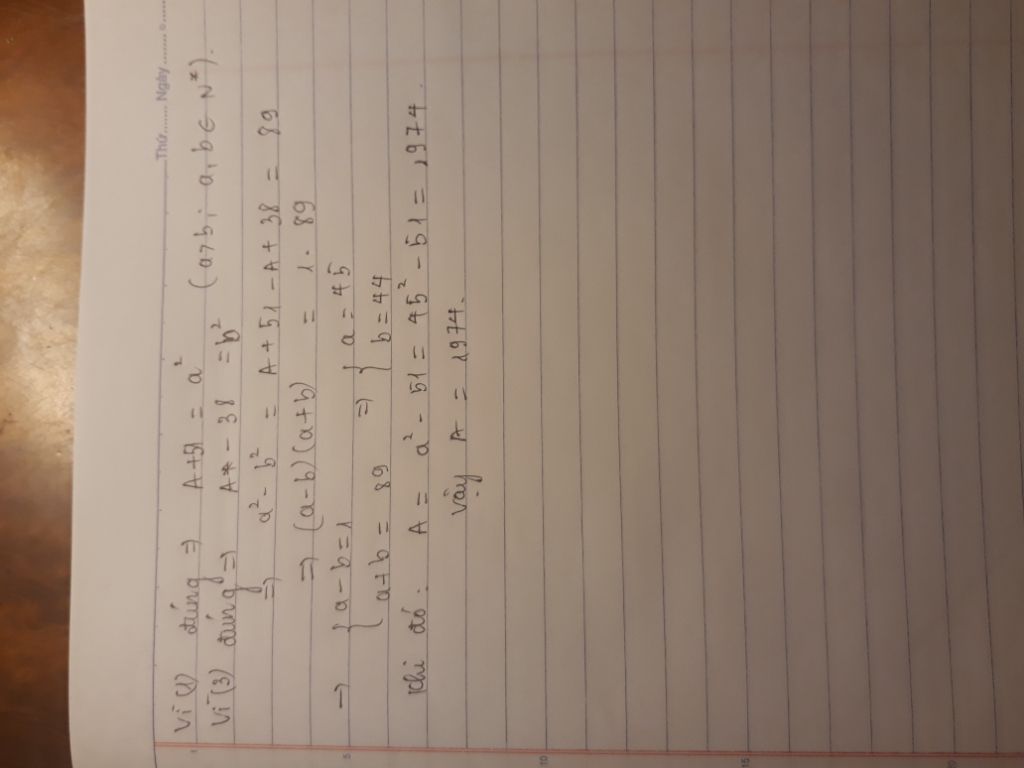 Thứ ......... Ngày .........
Vì (1) đúng => A+51 = a² (a>b; a,b ∈ N*).
Vì (3) đúng => A - 38 = b²
=> a² - b² = A + 51 - A + 38 = 89
=> (a-b)(a+b) = 1. 89
=> { a - b = 1 => { a = 45
a+b = 89 b = 44
Khi đó: A = a² - 51 = 45² - 51 = 1974.
Vậy A = 1974.
1
5
10
15
20